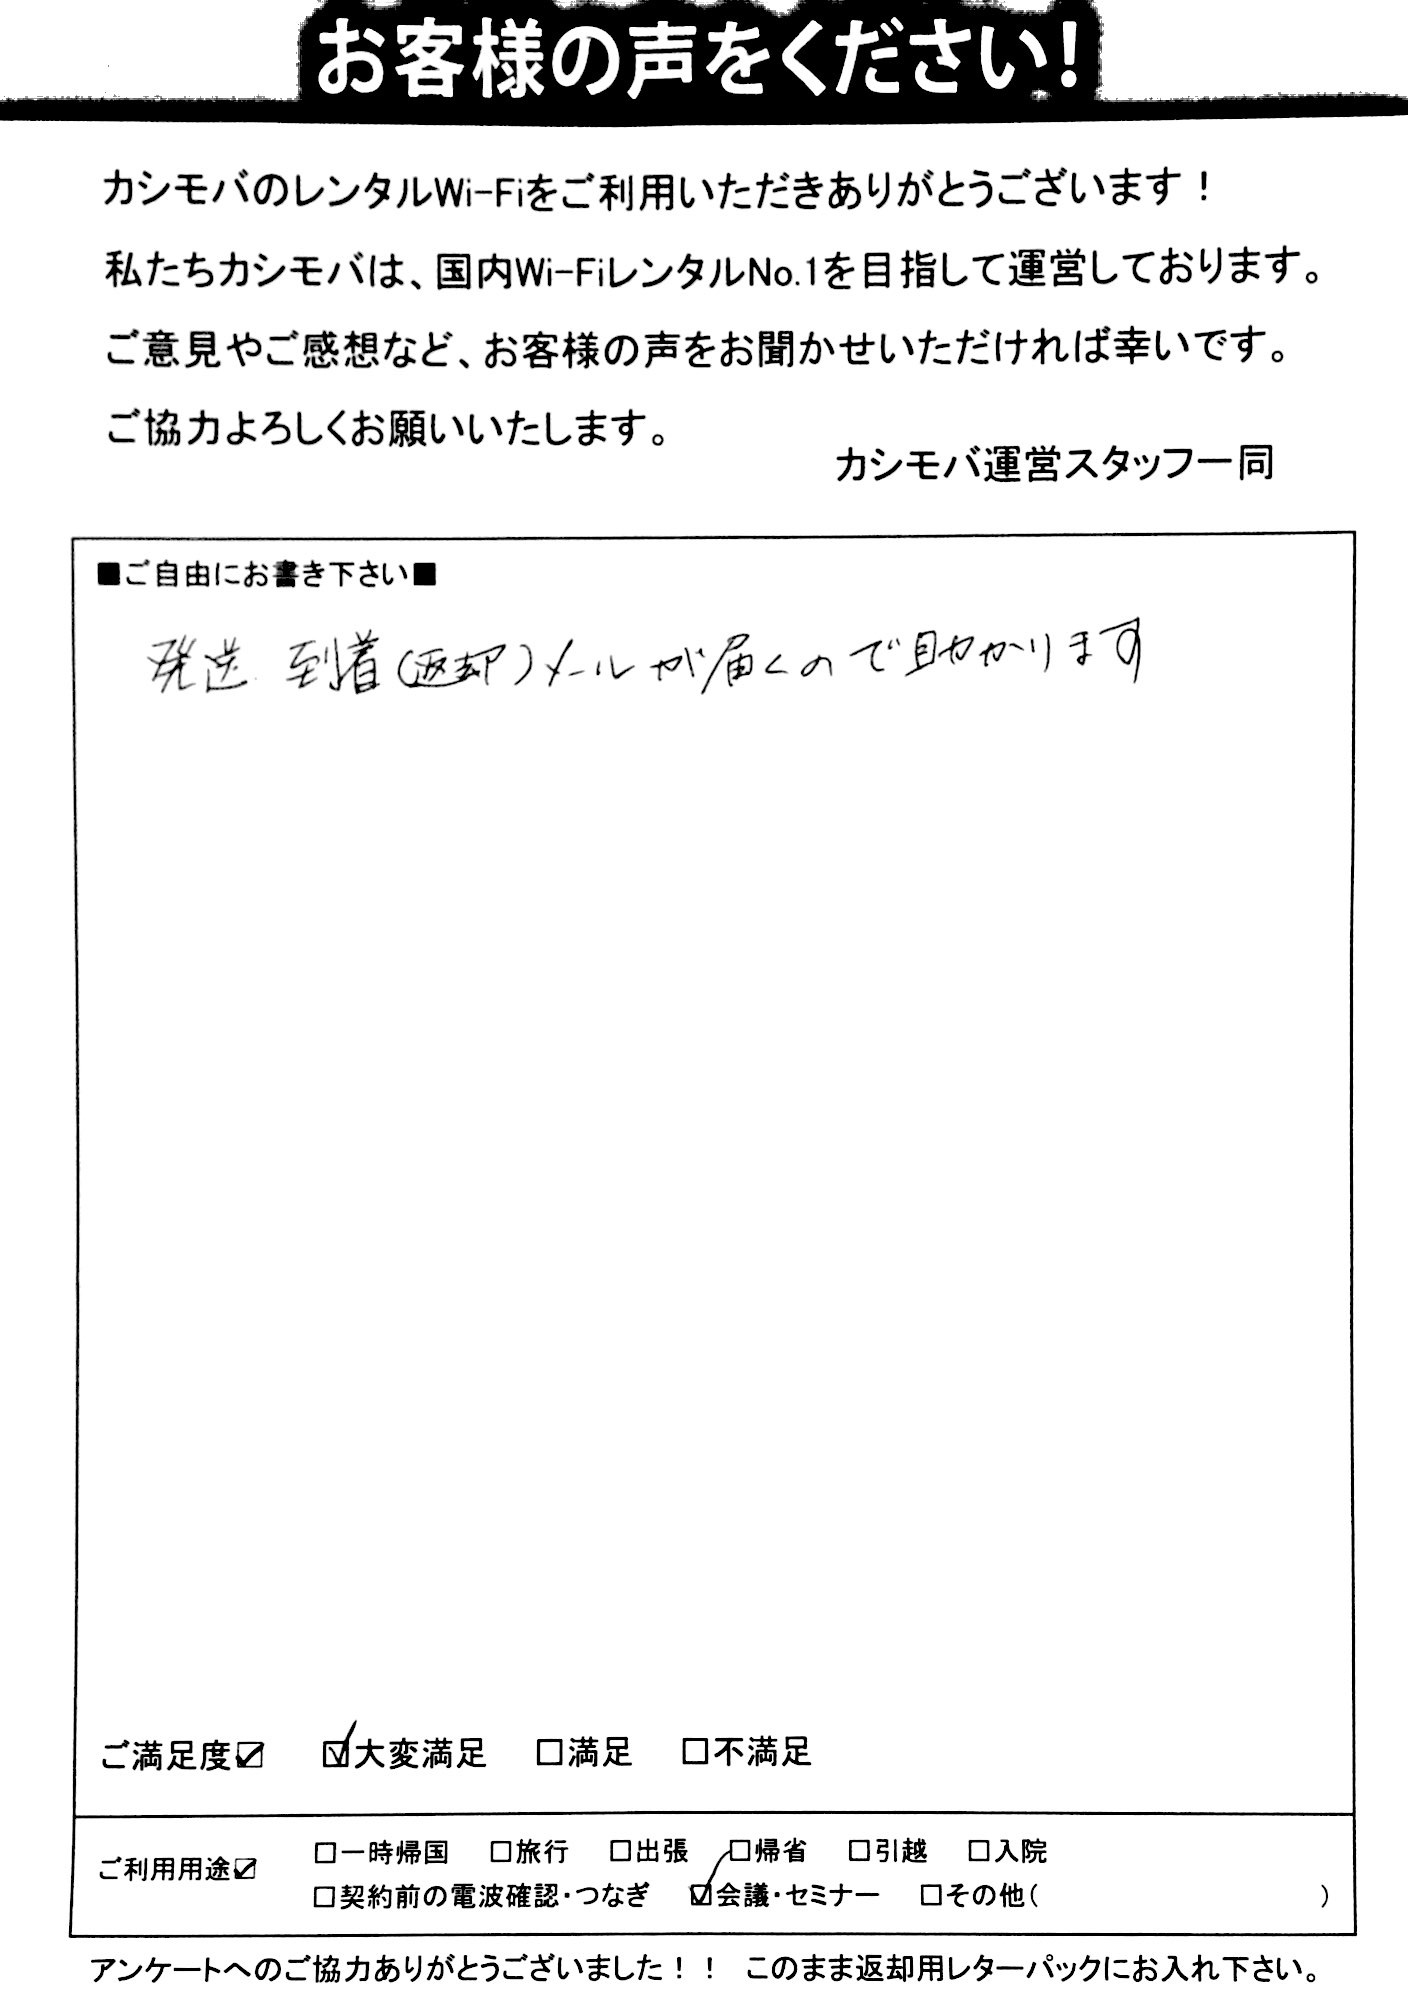 お客様の声をください!
カシモバのレンタルWi-Fiをご利用いただきありがとうございます!
私たちカシモバは、国内Wi-FiレンタルNo.1を目指して運営しております。
ご意見やご感想など、お客様の声をお聞かせいただければ幸いです。
ご協力よろしくお願いいたします。
カシモバ運営スタッフ一同
■ご自由にお書き下さい■
発送 到着(返却)メールが届くので助かります
ご満足度☑ ☑大変満足 □満足 □不満足
ご利用用途☑ □一時帰国 □旅行 □出張 □帰省 □引越 □入院
□契約前の電波確認・つなぎ ☑会議・セミナー □その他( )
アンケートへのご協力ありがとうございました!! このまま返却用レターパックにお入れ下さい。